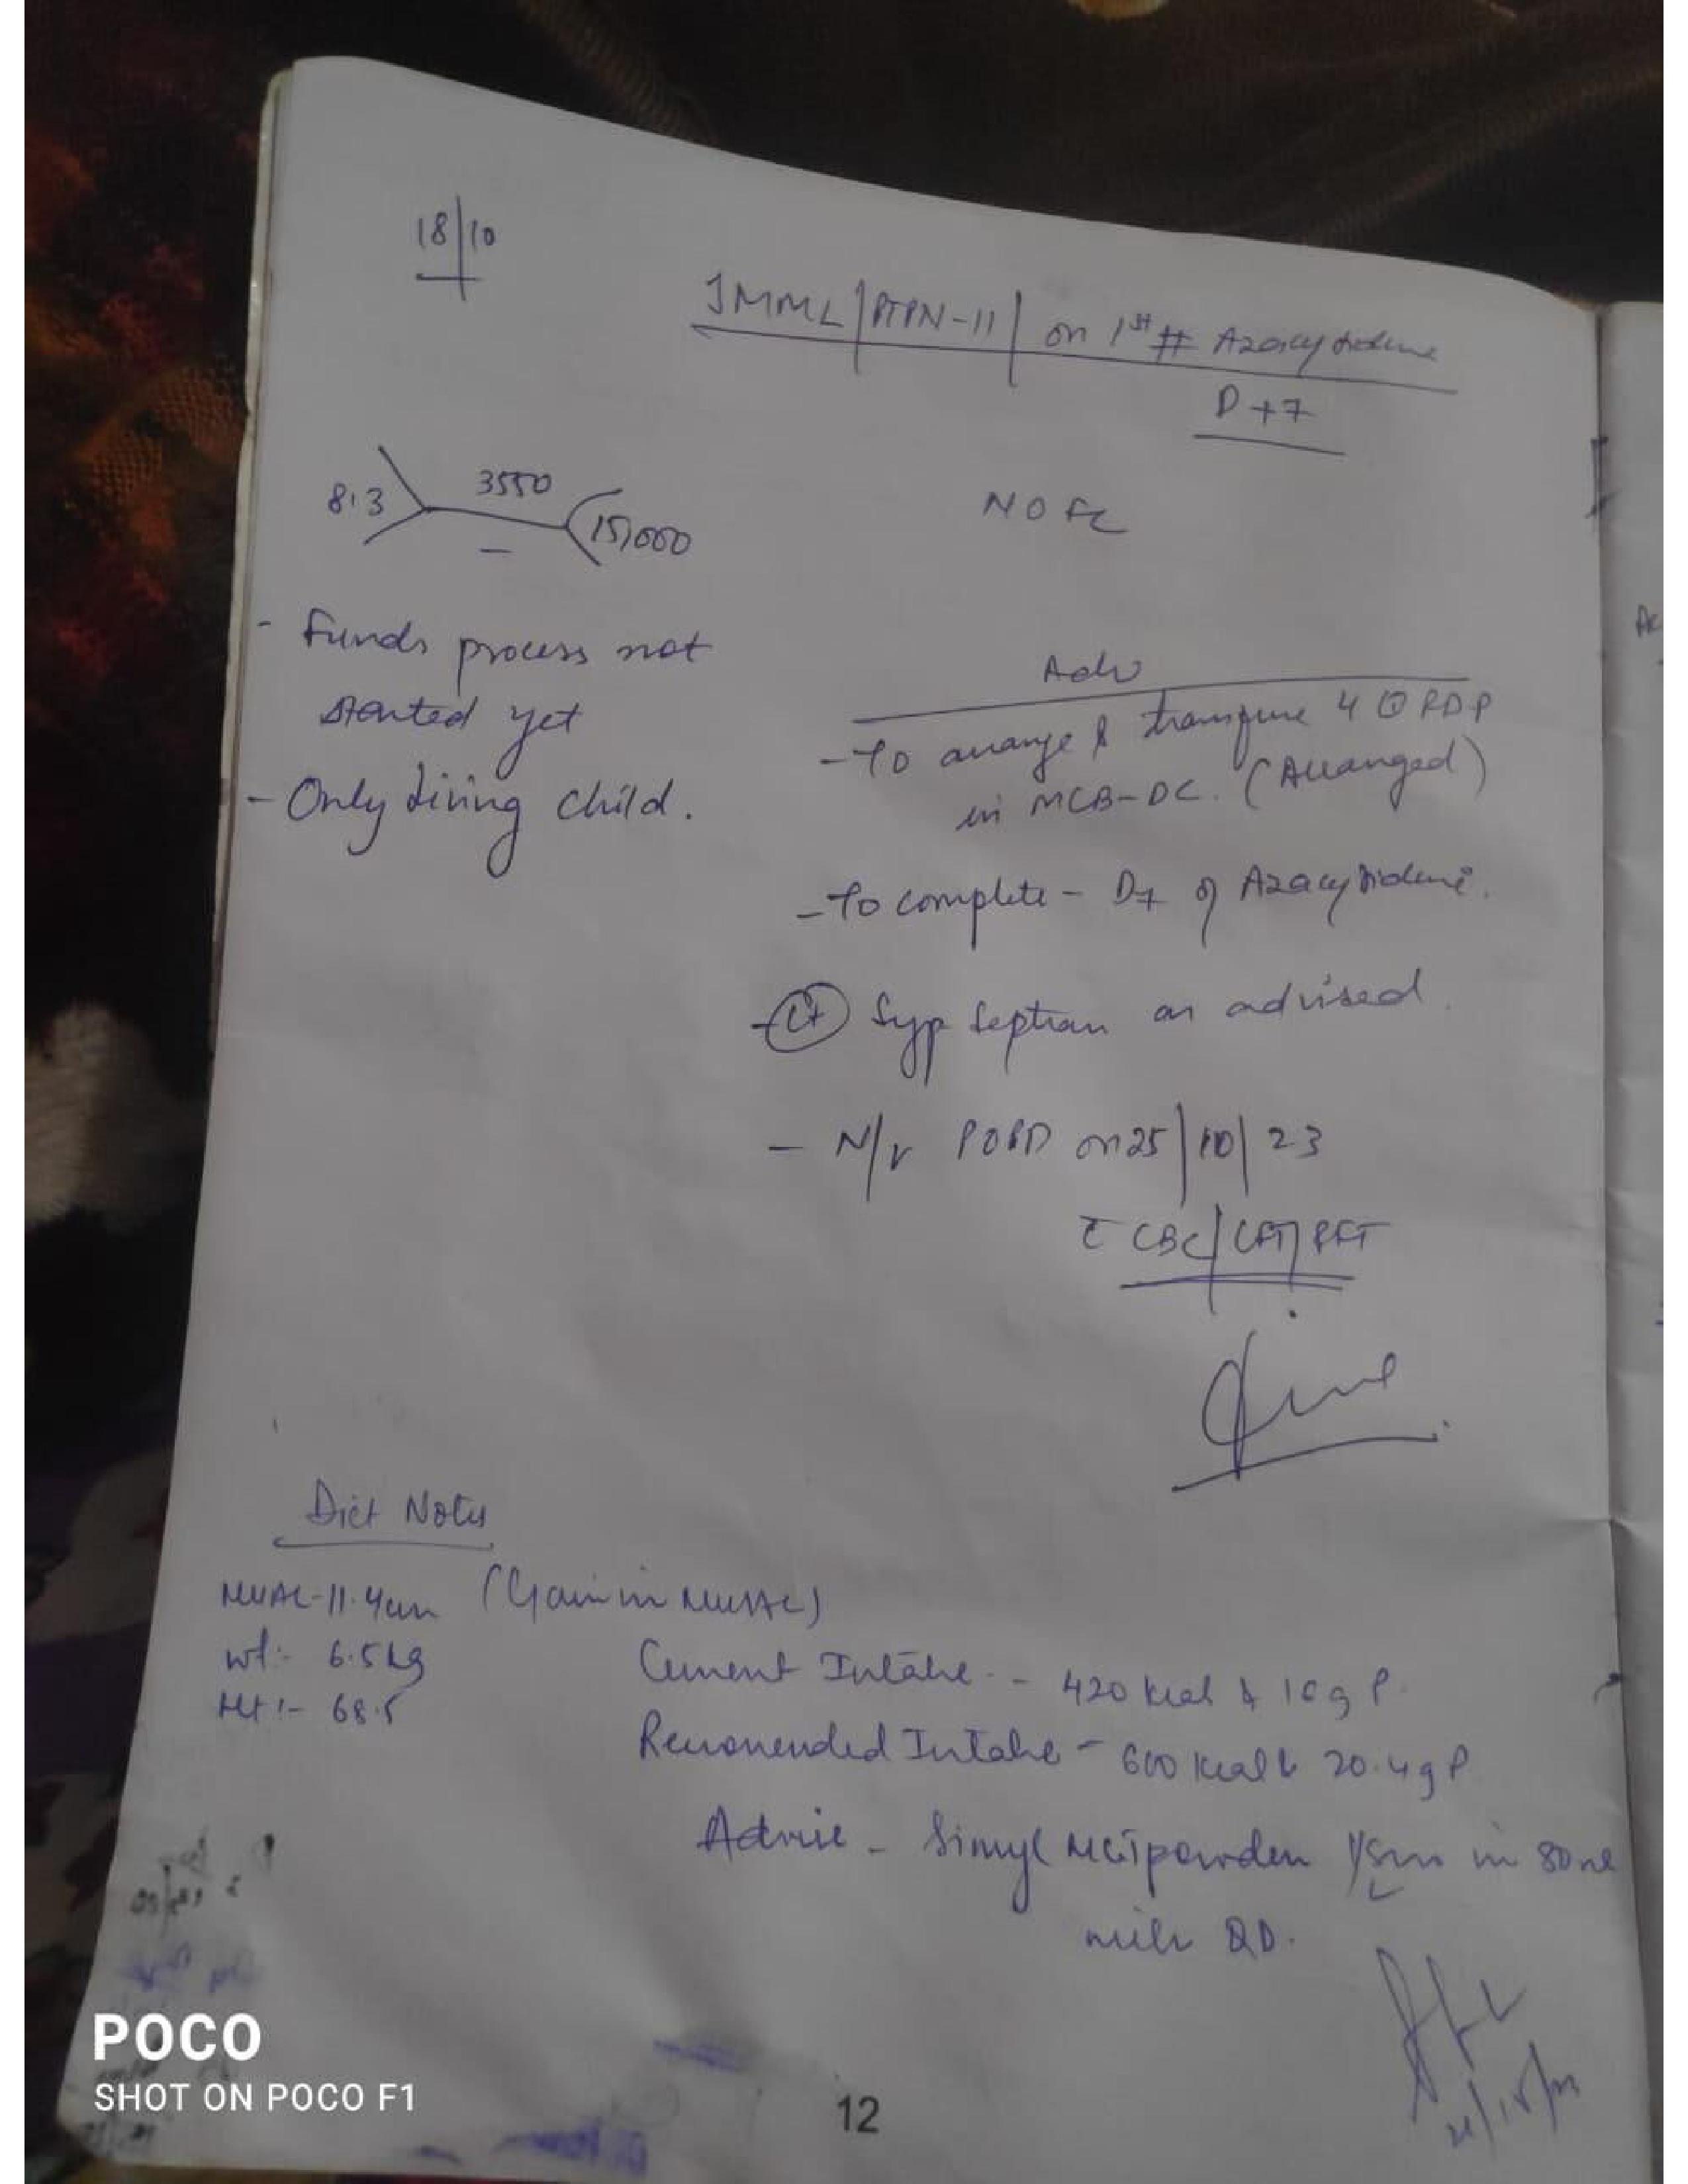 18/10
JMML/PTPN-11/ on 1st # Azacytidine
D+7
8.3 3550 15,000
NO FC
- Funds process not
started yet
- Only living child.
Adv
- To arrange & transfuse 4 Ⓤ RDP
in MCB-DC. (Arranged)
- To complete - D7 of Azacytidine.
- Ct Syp Septran as advised.
- N/V POPD on 25/10/23
c̄ CBC/LFT/RFT
Diet Notes
MUAC-11.4cm (Gain in MUAC)
wt:- 6.5kg
Ht:- 68.5
Current Intake - 420 kcal & 10g P.
Recomended Intake - 600 kcal & 20.4g P
Advice - Simyl MCT powder in 80ml
milk QD.
POCO
SHOT ON POCO F1
12